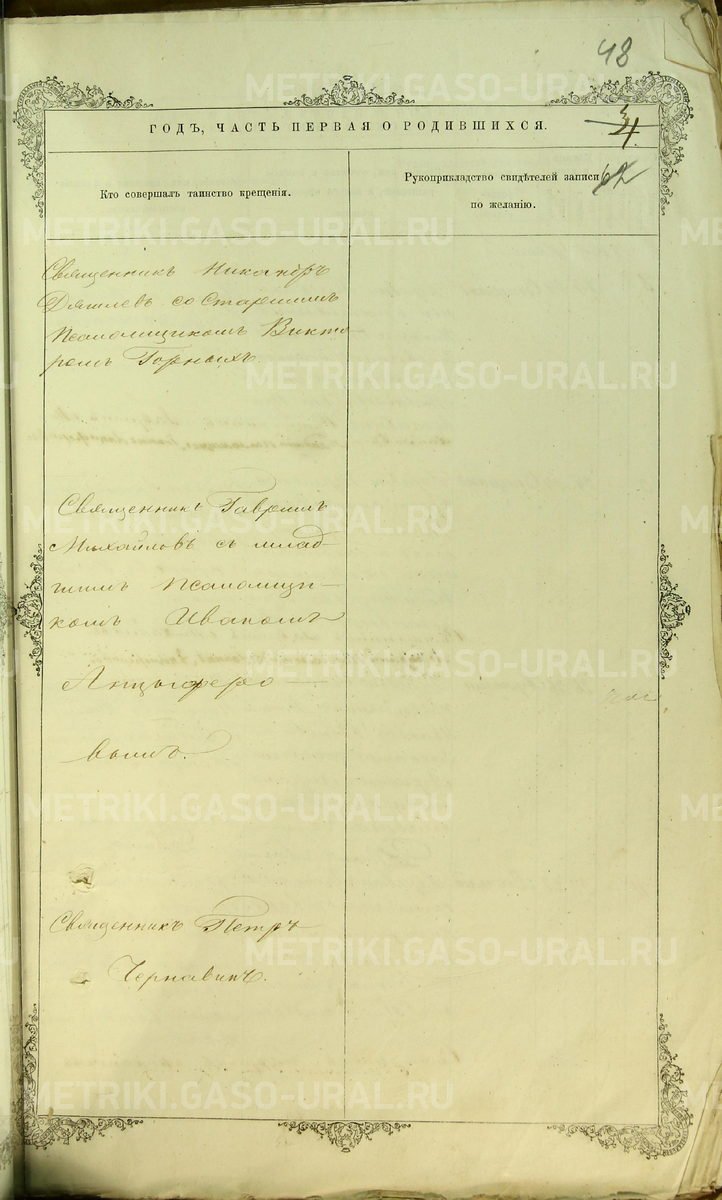 48
ГОДЪ, ЧАСТЬ ПЕРВАЯ О РОДИВШИХСЯ.
Кто совершалъ таинство крещенія.
Рукоприкладство свидѣтелей записи
по желанію.
Священникъ Никаноръ
со Старшимъ
Псаломщикомъ Викто
ромъ Горныхъ
Священникъ Гавріилъ
Михайловъ съ млад-
шимъ Псаломщи-
комъ Иваномъ
Анцыферо
вымъ.
Священникъ Петръ
Чернавинъ.
METRIKI.GASO-URAL.RU